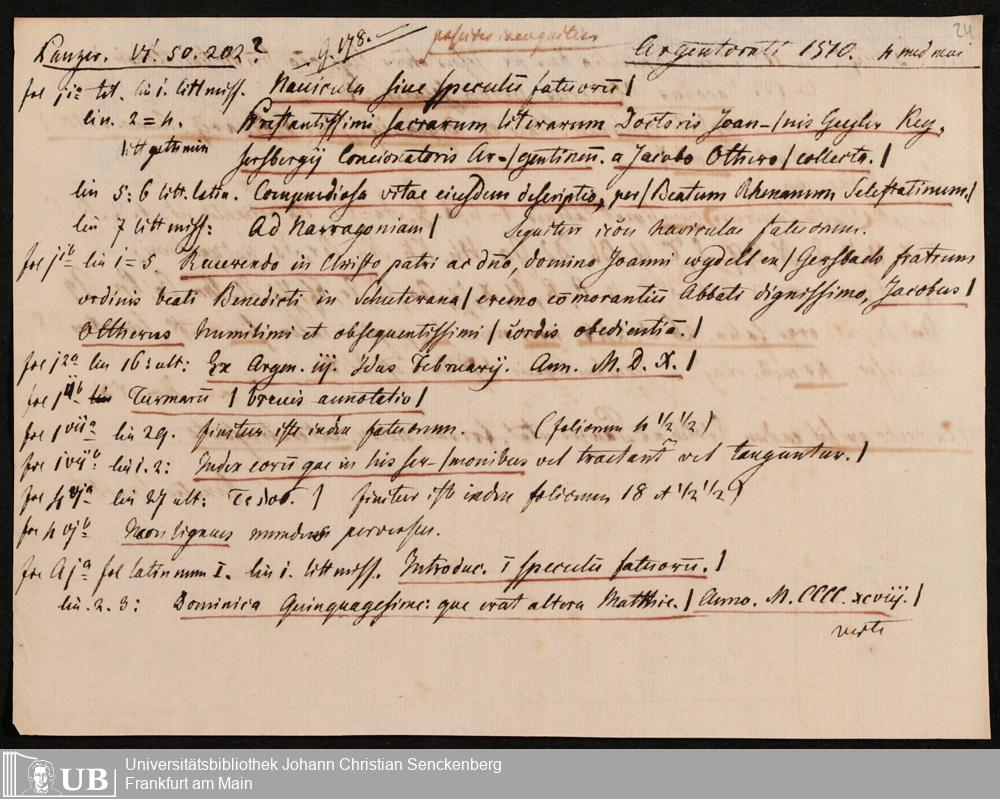 24
Panzer. VI. 50. 202? — 9.178. Argentorati 1510. 4 med mai
fol j a tit. lin 1. litt miss. Nauicula siue speculū fatuorū |
lin. 2=4. Prestantissimi sacrarum literarum Doctoris Joan-/nis Geyler Key,
litt goth min sersbergij Concionatoris Ar-/gentineñ. a Jacobo Othero / collecta. |
lin 5: 6 litt. latin. Compendiosa vitae eiusdem descriptio, per / Beatum Rhenanum Selestatinum. |
lin 7 litt miss: Ad Narragoniam | Sequitur icon naviculae fatuorum.
fol j b lin 1=5. Reuerendo in Christo patri ac dño, domino Joanni / Gersbach fratrum
ordinis beati Benedicti in Schuterana / eremo cōmorantiū Abbati dignissimo, Jacobus /
Ottherus humilimi et obsequentissimi / cordis obedientiā. |
fol j 2a lin 16: ult: Ex Argen. iij. Idus Februarij. Ann. M. D. X. |
Turmarū / breuis annotatio |
lin 29. finitur iste index fatuorum. (foliorum 4 1/2 1/2)
lin. 1. 2: Index eorū que in his ser-/monibus vel tractant vel tanguntur. |
lin 27 ult: | finitur iste index foliorum 18 et 1/2 1/2)
fol h vj b lignum mundus perversus.
fol A j a fol latin num I. lin 1. litt miss. Introduc. ī speculū fatuorū. |
lin. 2. 3: Dominica Quinquagesime: que erat altera Matthie. / Anno. M. CCCC. xcviij. |
verte
UB
Universitätsbibliothek Johann Christian Senckenberg
Frankfurt am Main